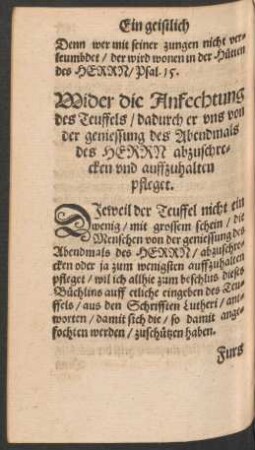 Ein geistlich
Denn wer mit seiner zungen nicht ver-
leumbdet / der wird wonen in der Hütten
des HERRN / Psal. 15.
Wider die Anfechtung
des Teuffels / dadurch er vns von
der geniessung des Abendmals
des HERRN abzuschre-
cken vnd auffzuhalten
pfleget.
DJeweil der Teuffel nicht ein
wenig / mit grossem schein / die
Menschen von der geniessung des
Abendmals des HERRN / abzuschre-
cken oder ja zum wenigsten auffzuhalten
pfleget / wil ich allhie zum beschlus dieses
Büchlins auff etliche eingeben des Teu-
ffels / aus den Schrifften Lutheri / ant-
worten / damit sich die / so damit ange-
fochten werden / zuschützen haben.
Furs